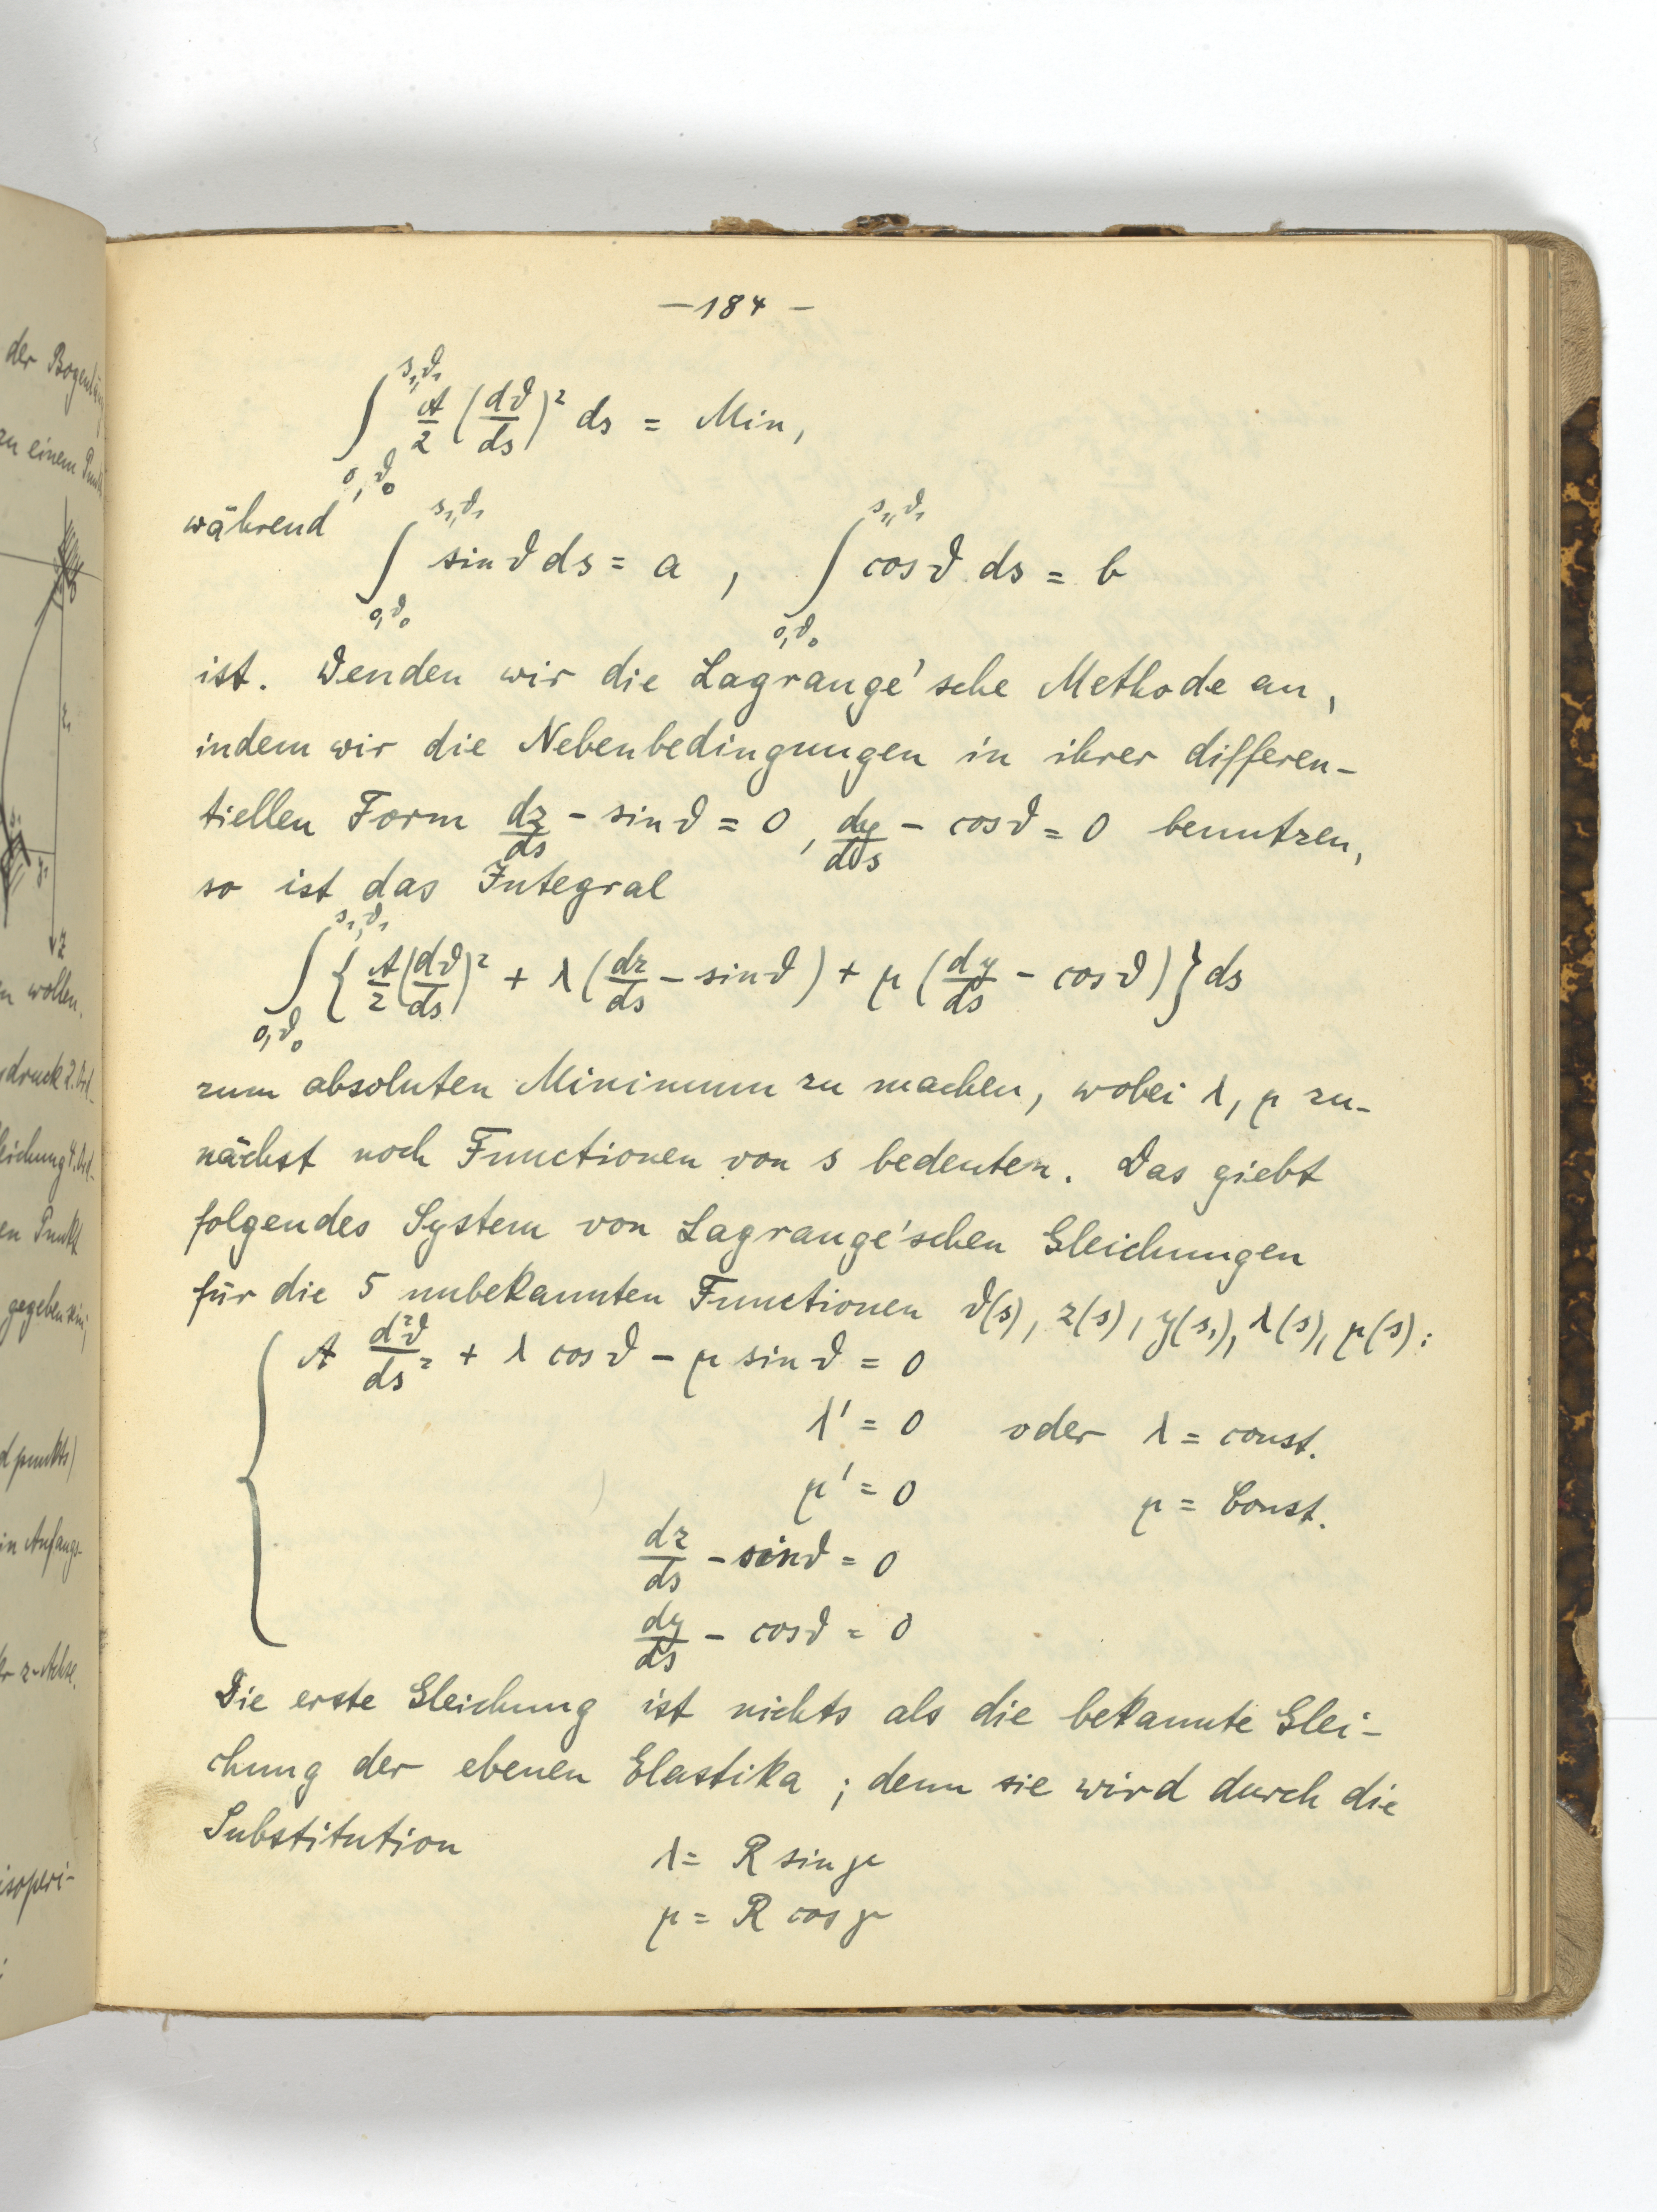 der Bogenlän
zu einem Punkt
z₁
y₁
z
n wollen.
druck 2. Ord-
leichung 4. Ord-
en Punkt
gegeben sein;
d punkts)
in Anfangs-
er z-Achse.
isoperi-
— 184 —
∫_{0,ϑ₀}^{s₁,ϑ₁} A/2 (dϑ/ds)² ds = Min,
während
∫_{0,ϑ₀}^{s₁,ϑ₁} sin ϑ ds = a , ∫_{0,ϑ₀}^{s₁,ϑ₁} cos ϑ ds = b
ist. Wenden wir die Lagrange'sche Methode an,
indem wir die Nebenbedingungen in ihrer differen-
tiellen Form dz/ds - sin ϑ = 0, dy/ds - cos ϑ = 0 benutzen,
so ist das Integral
∫_{0,ϑ₀}^{s₁,ϑ₁} { A/2 (dϑ/ds)² + λ (dz/ds - sin ϑ) + μ (dy/ds - cos ϑ) } ds
zum absoluten Minimum zu machen, wobei λ, μ zu-
nächst noch Functionen von s bedeuten. Das giebt
folgendes System von Lagrange'schen Gleichungen
für die 5 unbekannten Functionen ϑ(s), z(s), y(s,), λ(s), μ(s):
A d²ϑ/ds² + λ cos ϑ - μ sin ϑ = 0
λ' = 0 oder λ = const.
μ' = 0 μ = Const.
dz/ds - sin ϑ = 0
dy/ds - cos ϑ = 0
Die erste Gleichung ist nichts als die bekannte Glei-
chung der ebenen Elastika ; denn sie wird durch die
Substitution
λ = R sin γ
μ = R cos γ